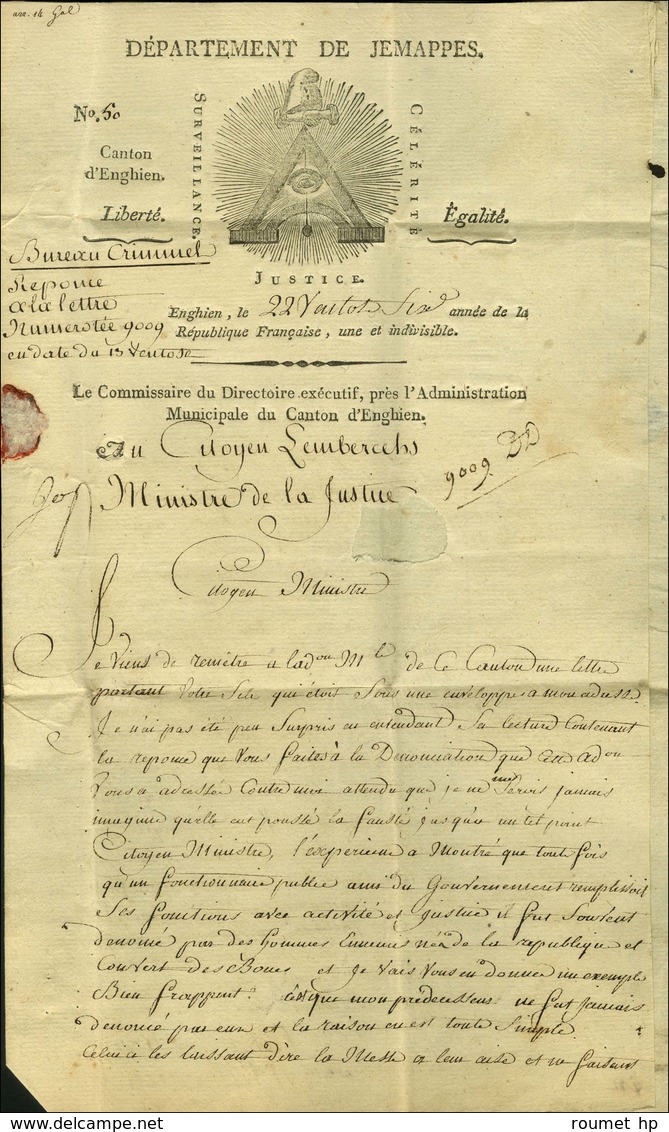 DÉPARTEMENT DE JEMAPPES.
No. 50
SURVEILLANCE.
CÉLÉRITÉ
Canton
d'Enghien.
Liberté.
Égalité.
JUSTICE.
Bureau Criminel
Reponce
a la lettre
Numerotée 9009
en date du 13 Ventose
Enghien, le 22 Ventose Six année de la
République Française, une et indivisible.
Le Commissaire du Directoire exécutif, près l'Administration
Municipale du Canton d'Enghien.
Au Citoyen Lembercehs
9009
Ministre de la Justice
Citoyen Ministre
Je Viens de remêtre a ladon Mle de Ce Canton une lettre
portant Votre Sele qui étoit Sous une enveloppe a mon adresse.
Je n'ai pas été peu Surpris en entendant Sa lecture Contenant
la reponce que Vous faites à la Denonciation que adon
Vous a adressée Contre moi attendu que je ne Serois jamais
imaginé qu'elle eut poussé la fausté jusqu'a un tel point
Citoyen Ministre, l'éxperience a Montré que toute fois
qu'un fonctionnaire public ami du Gouvernement remplissoit
Ses fonctions avec activité et justice il fut Souvent
denoncé par des hommes Ennemis né de la republique et
Couvert des Boues et Je Vais Vous en donner un exemple
Bien frappent. C'est que mon predecesseur ne fut jamais
denoncé par eux et la raison en est toute Simple
Celui ci les laissant dire la Messe a leur aise et ne faisant
delcampe.net
roumet hp